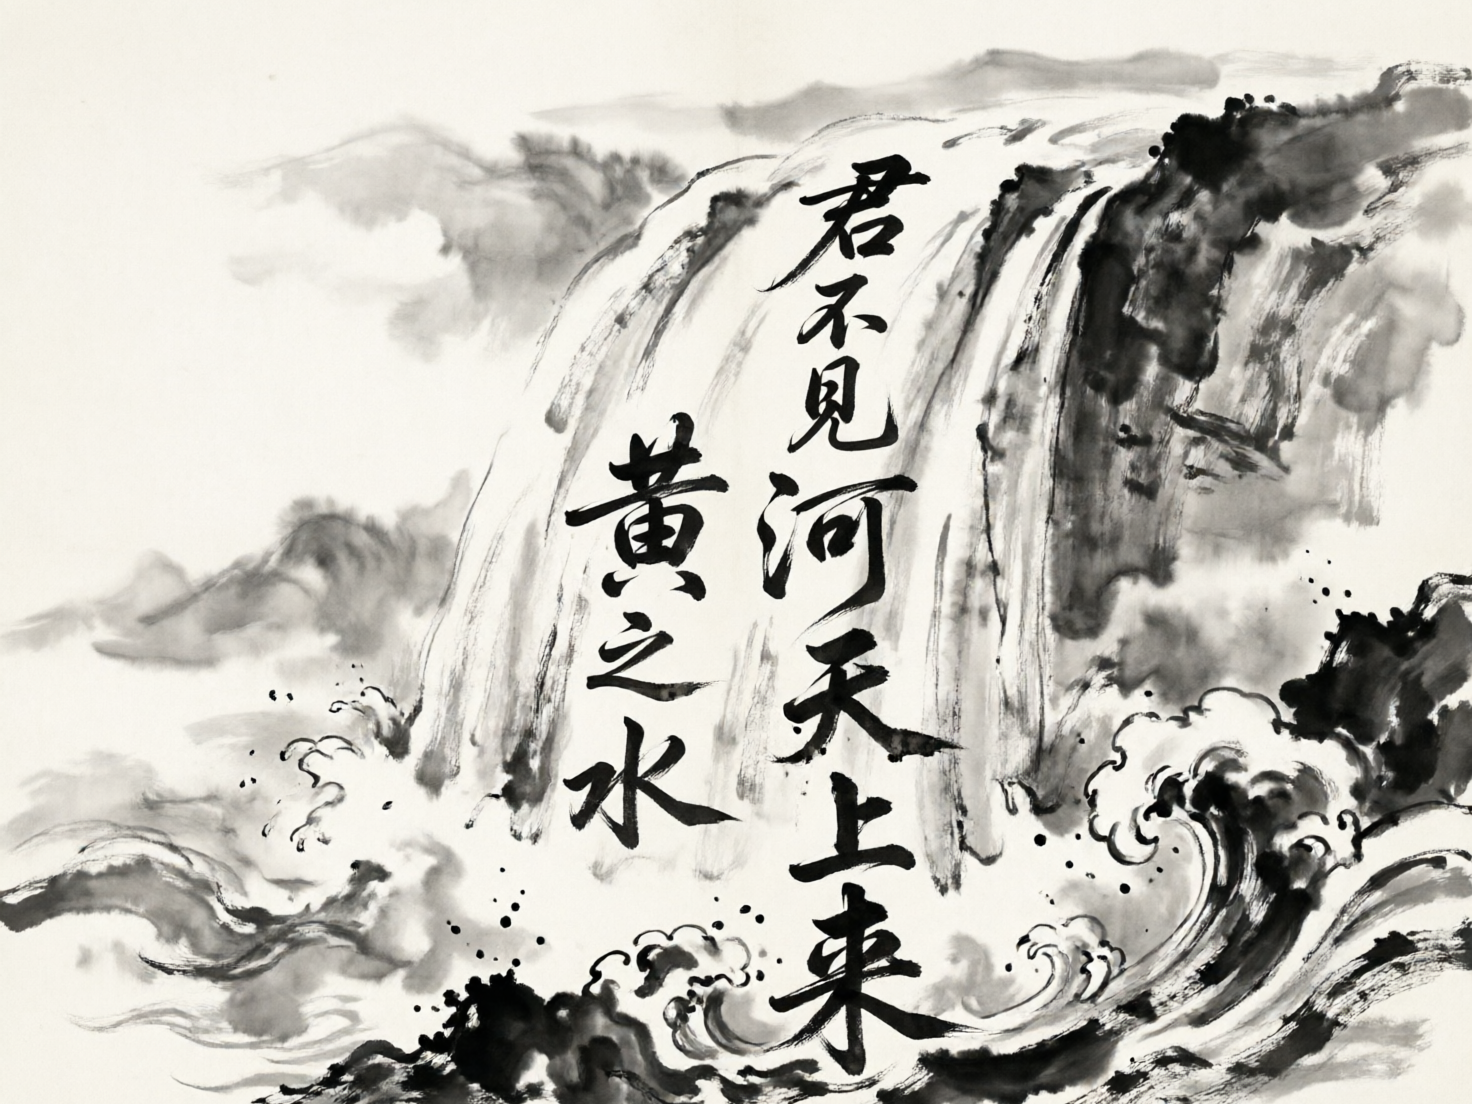 君不見河天上来
黄之水